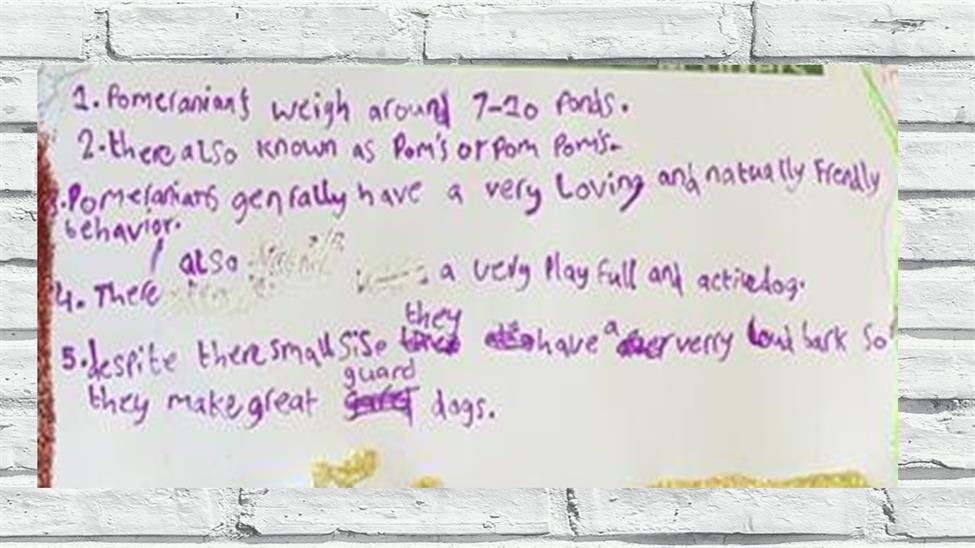 1. Pomeranians weigh around 7-10 Ponds.
2. there also known as Pom's or Pom Pom's.
3. Pomerianans genrally have a very Loving and natually Frendly
behavior.
4. There also a very Play full and active dog.
5. despite there small siSe they have a verry loud bark So
they make great guard dogs.